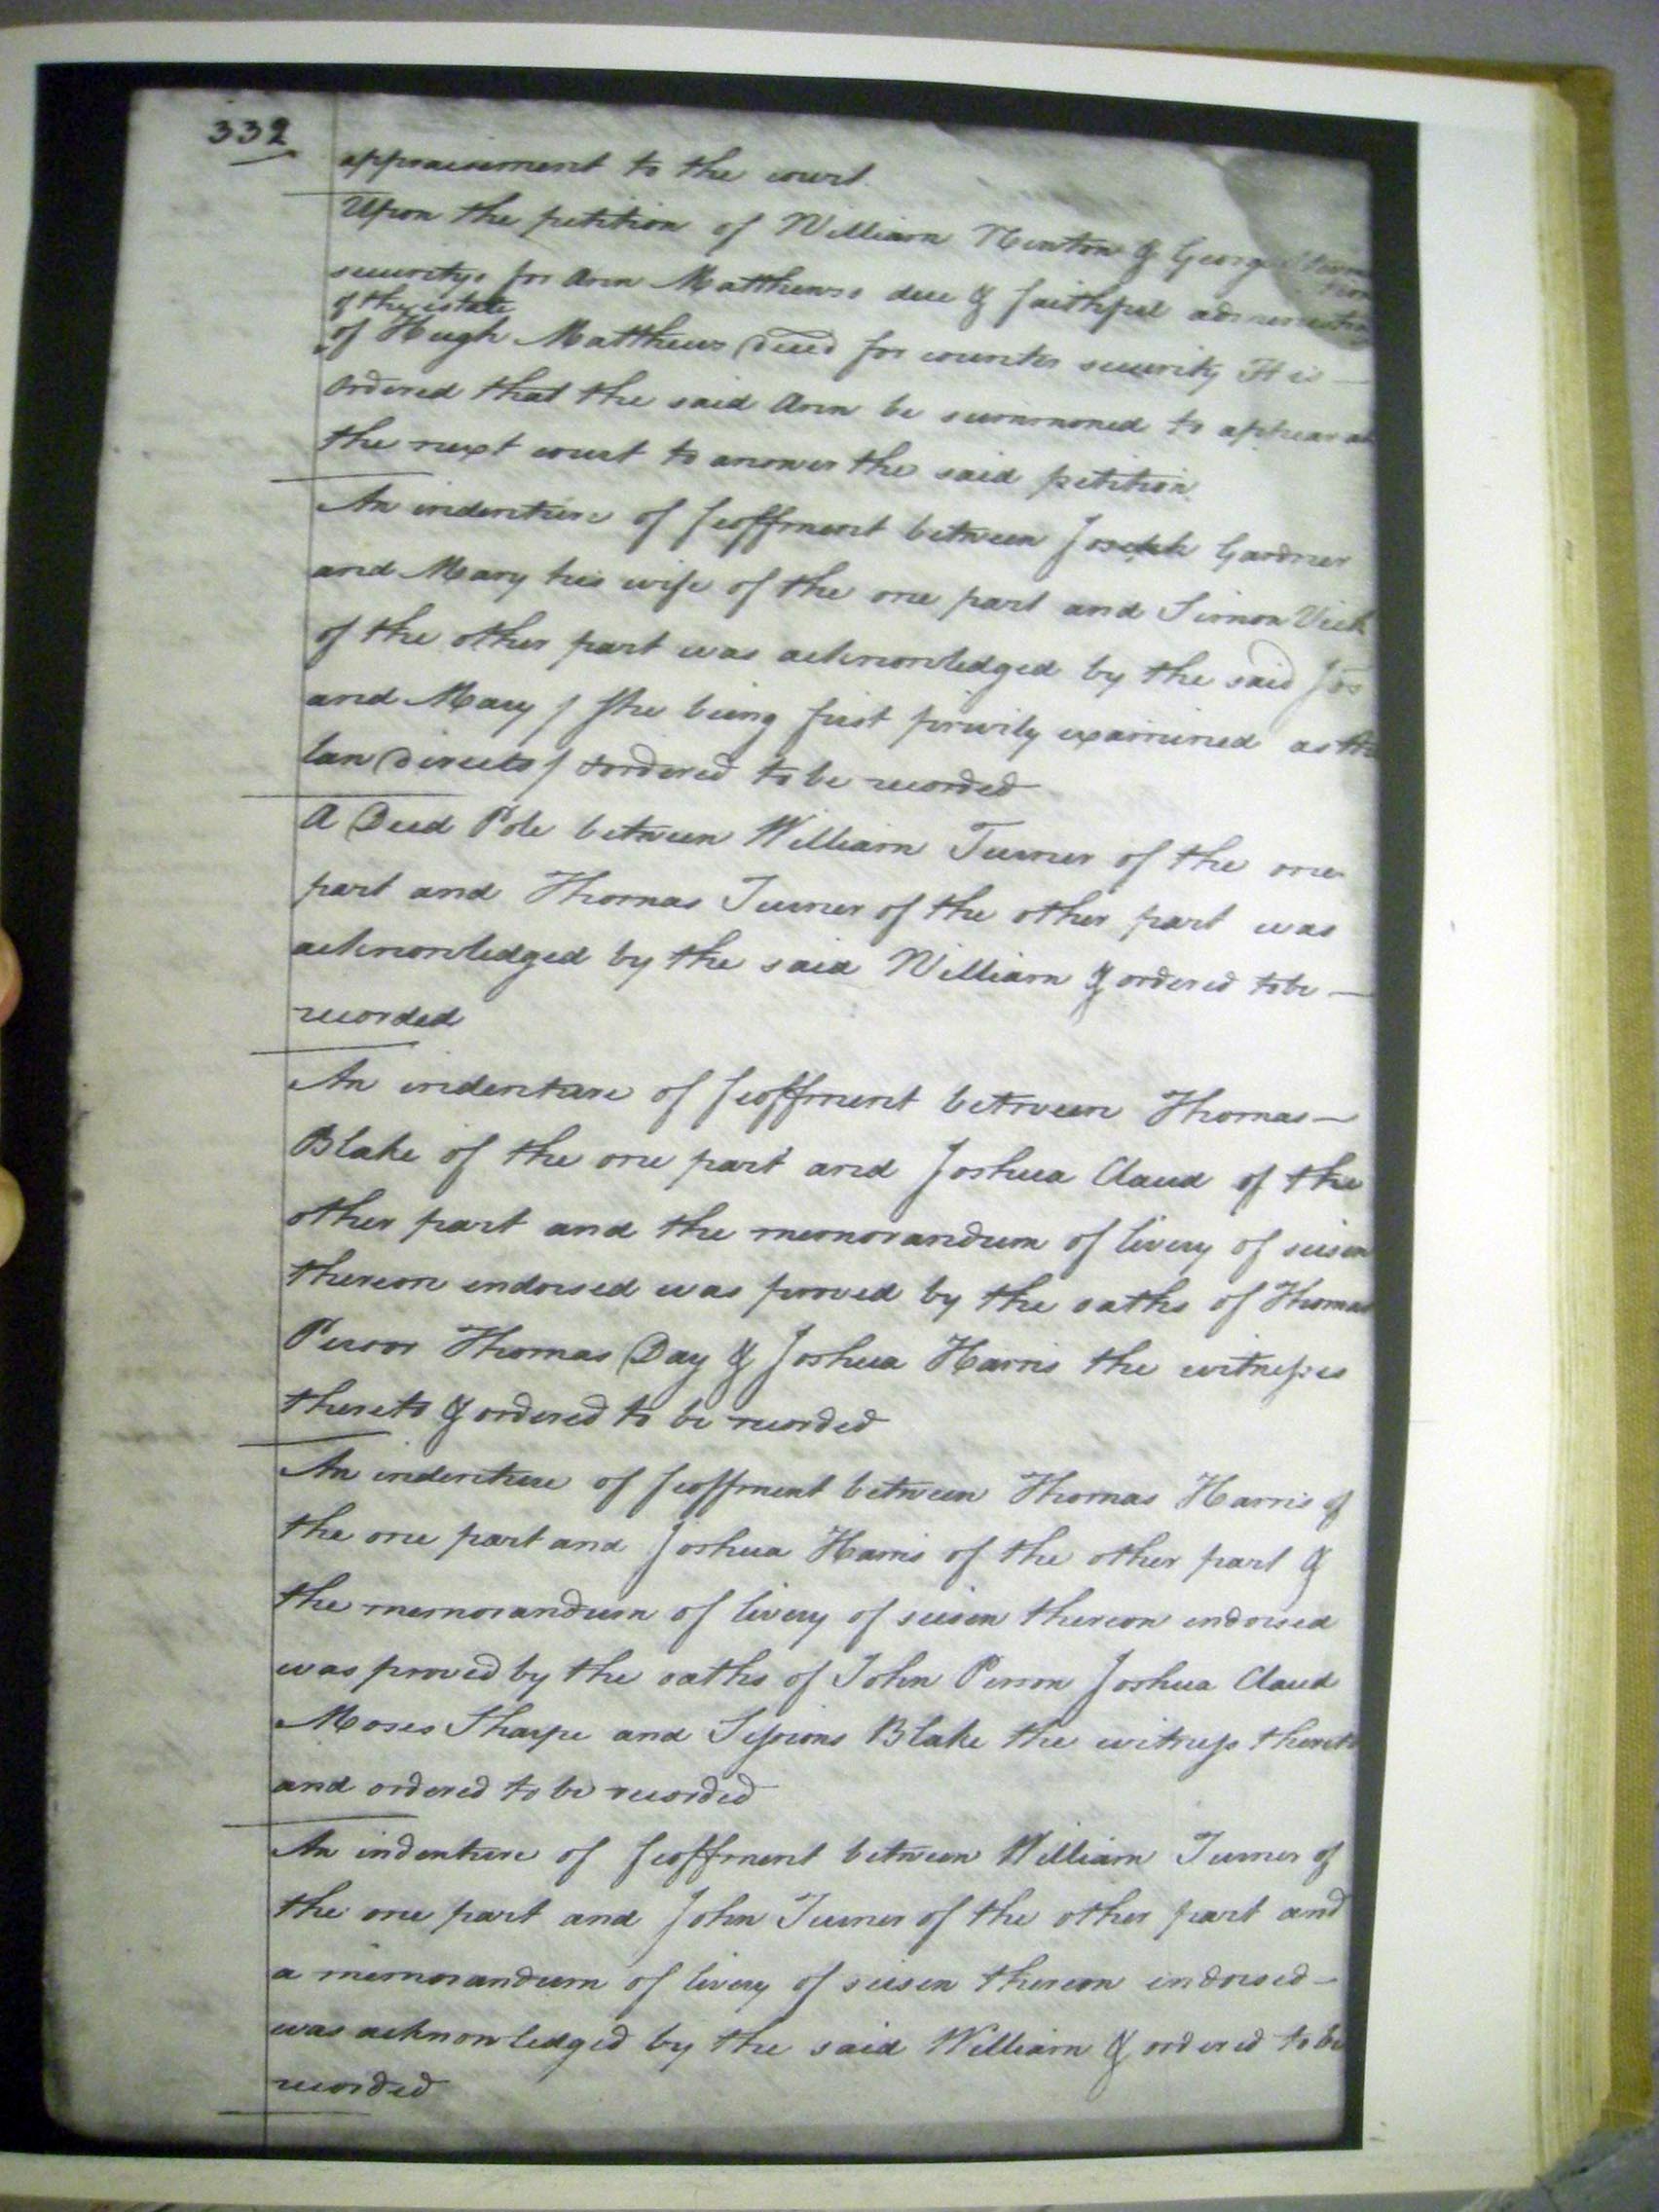 332
appraisement to the court
Upon the petition of William Newton & George
securitys for Ann Matthews's due & faithful
of the estate
of Hugh Matthews Deced for counter security It is —
Ordered that the said Ann be summoned to appear at
the next court to answer the said petition
An indenture of feoffment between Joseph Gardner
and Mary his wife of the one part and Simon Vick
of the other part was acknowledged by the said Jos
and Mary / she being first privily examined as the
law directs / & ordered to be recorded
A Deed Pole between William Turner of the one
part and Thomas Turner of the other part was
acknowledged by the said William & ordered to be —
recorded
An indenture of feoffment between Thomas —
Blake of the one part and Joshua Claud of the
other part and the memorandum of livery of seisen
thereon endorsed was proved by the oaths of Thomas
Thomas Day & Joshua Harris the witnesses
thereto & ordered to be recorded
An indenture of feoffment between Thomas Harris of
the one part and Joshua Harris of the other part &
the memorandum of livery of seisen thereon endorsed
was proved by the oaths of John Person Joshua Claud
Moses Tharpe and Sessions Blake the witness thereto
and ordered to be recorded
An indenture of feoffment between William Turner of
the one part and John Turner of the other part and
a memorandum of livery of seisen thereon endorsed —
was acknowledged by the said William & ordered to be
recorded